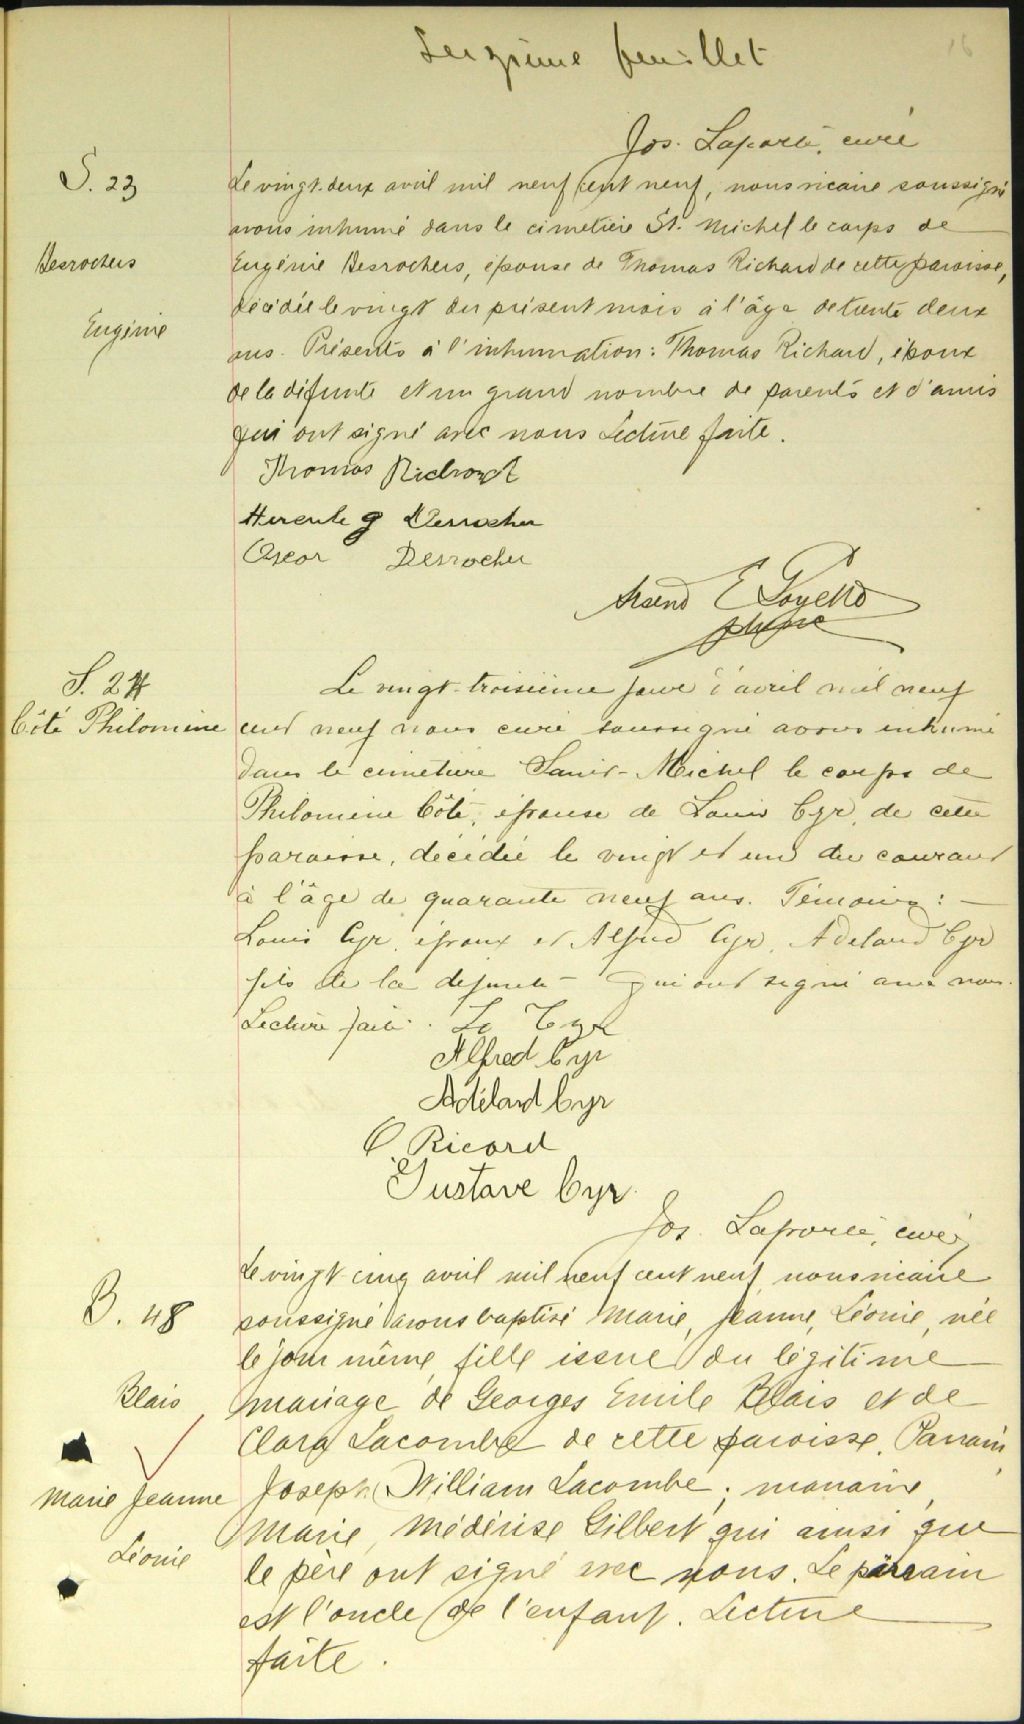 Seizième feuillet
16
Jos. Laporte, curé
S. 23
Desrochers
Eugénie
Le vingt-deux avril mil neuf cent neuf, nous vicaire soussigné
avons inhumé dans le cimetière St. Michel le corps de
Eugénie Desrochers, épouse de Thomas Richard de cette paroisse,
décédée le vingt du présent mois à l'âge de trente deux
ans. Présents à l'inhumation: Thomas Richard, époux
de la défunte et un grand nombre de parents et d'amis
qui ont signé avec nous Lecture faite.
Thomas Richard
Hercule J Desrocher
Oscar Desrocher
Arsend E
ptre vic
S. 24
Côté Philomène
Le vingt-troisième jour d'avril mil neuf
cent neuf nous curé soussigné avons inhumé
dans le cimetière Saint-Michel le corps de
Philomène Côté, épouse de Louis Cyr, de cette
paroisse, décédée le vingt et un du courant
à l'âge de quarante neuf ans. Témoins: —
Louis Cyr, époux et Alfred Cyr, Adélard Cyr
fils de la défunte — qui ont signé avec nous.
Lecture faite. Ls Cyr
Alfred Cyr
Adélard Cyr
O. Ricard
Gustave Cyr
Jos. Laporte, curé
B. 48
Blais
Marie Jeanne
Léonie
Le vingt-cinq avril mil neuf cent neuf, nous vicaire
soussigné avons baptisé Marie, Jeanne, Léonie, née
le jour même, fille issue du légitime
mariage de Georges Emile Blais et de
Clara Lacombe de cette paroisse. Parrain,
Joseph William Lacombe; marraine,
Marie Médérise Gilbert qui ainsi que
le père ont signé avec nous. Le parrain
est l'oncle de l'enfant. Lecture
faite.